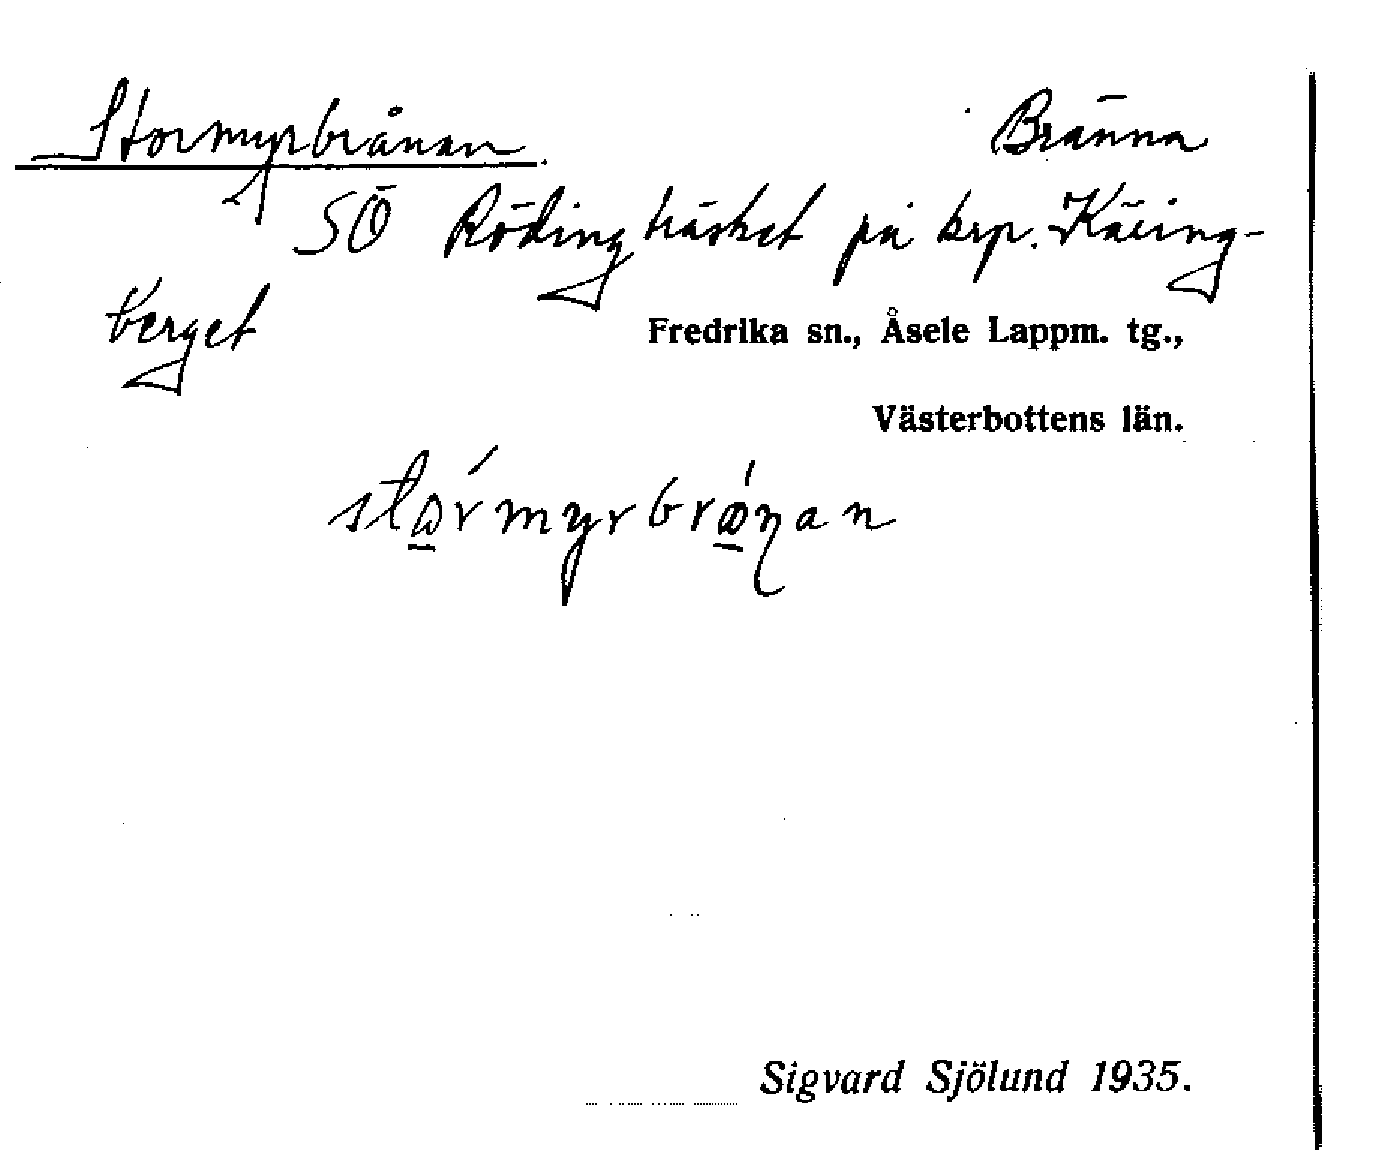 Stormyrbrånan. Bränna
SÖ Rödingträsket på krp. Käring-
berget
Fredrika sn., Åsele Lappm. tg.,
Västerbottens län.
Sigvard Sjölund 1935.